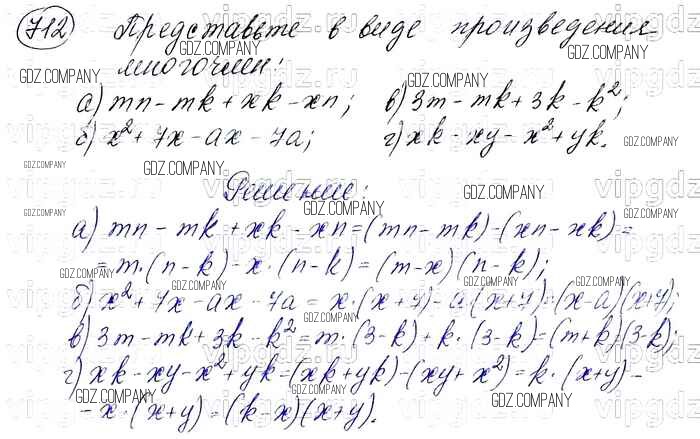 712 Представьте в виде произведения
многочлен:
а) mn - mk + xk - xn; в) 3m - mk + 3k - k²;
б) x² + 7x - ax - 7a; г) xk - xy - x² + yk.
Решение:
а) mn - mk + xk - xn = (mn - mk) - (xn - xk) =
= m·(n - k) - x·(n - k) = (m - x)(n - k);
б) x² + 7x - ax - 7a = x·(x + 7) - a(x + 7) = (x - a)(x + 7);
в) 3m - mk + 3k - k² = m·(3 - k) + k·(3 - k) = (m + k)(3 - k);
г) xk - xy - x² + yk = (xk + yk) - (xy + x²) = k·(x + y) -
- x·(x + y) = (k - x)(x + y).